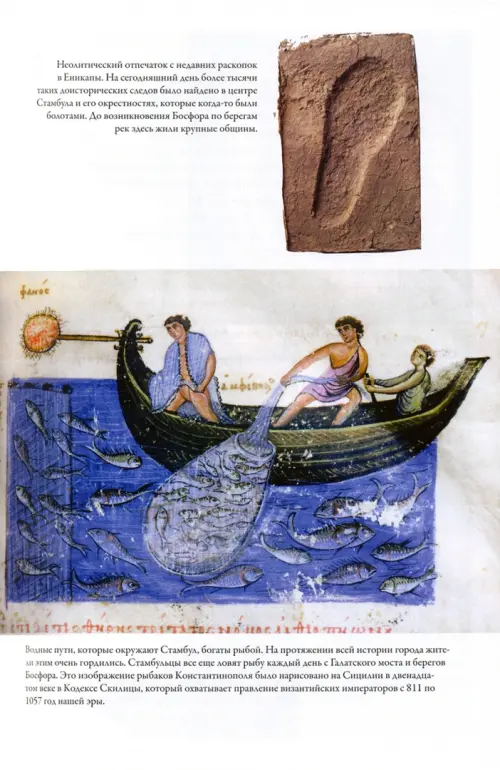 Неолитический отпечаток с недавних раскопок
в Еникапы. На сегодняшний день более тысячи
таких доисторических следов было найдено в центре
Стамбула и его окрестностях, которые когда-то были
болотами. До возникновения Босфора по берегам
рек здесь жили крупные общины.
φανός
Водные пути, которые окружают Стамбул, богаты рыбой. На протяжении всей истории города жите-
ли этим очень гордились. Стамбульцы все еще ловят рыбу каждый день с Галатского моста и берегов
Босфора. Это изображение рыбаков Константинополя было нарисовано на Сицилии в двенадца-
том веке в Кодексе Скилицы, который охватывает правление византийских императоров с 811 по
1057 год нашей эры.